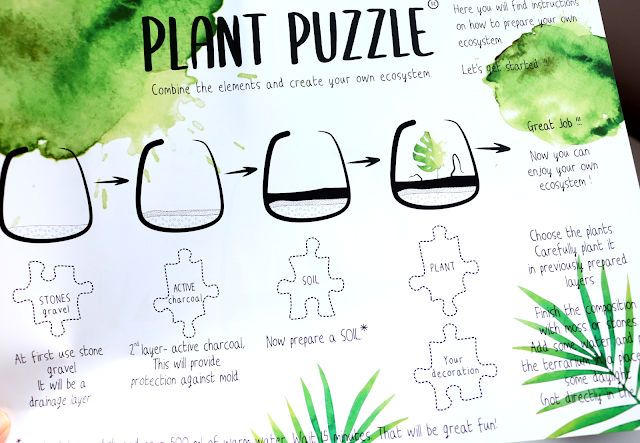 PLANT PUZZLE
Combine the elements and create your own ecosystem
Here you will find instructions
on how to prepare your own
ecosystem
Let's get started !!!
STONES
gravel
At first use stone
gravel
It will be a
drainage layer
ACTIVE
charcoal
2nd layer- active charcoal.
This will provide
protection against mold.
SOIL
Now prepare a SOIL*
PLANT
Your
decoration
Great Job !!!
Now you can
enjoy your own
ecosystem !
Choose the plants.
Carefully plant it
in previously prepared
layers
Finish the composition
with moss or stones.
Add some water and
the terrarium in a place
some daylight
(not directly in the
* 500 ml of warm water. Wait 15 minutes. That will be great fun!